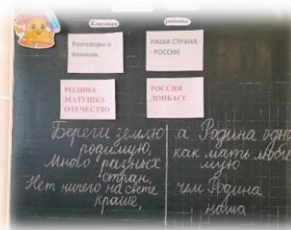 Классная работа
Разговоры о важном.
НАША СТРАНА - РОССИЯ
РОДИНА
МАТУШКА
ОТЕЧЕСТВО
РОССИЯ
ДОНБАСС
Береги землю
родимую,
Много разных
стран,
Нет ничего на свете
краше,
а Родина одна
как мать любимую.
чем Родина
наша